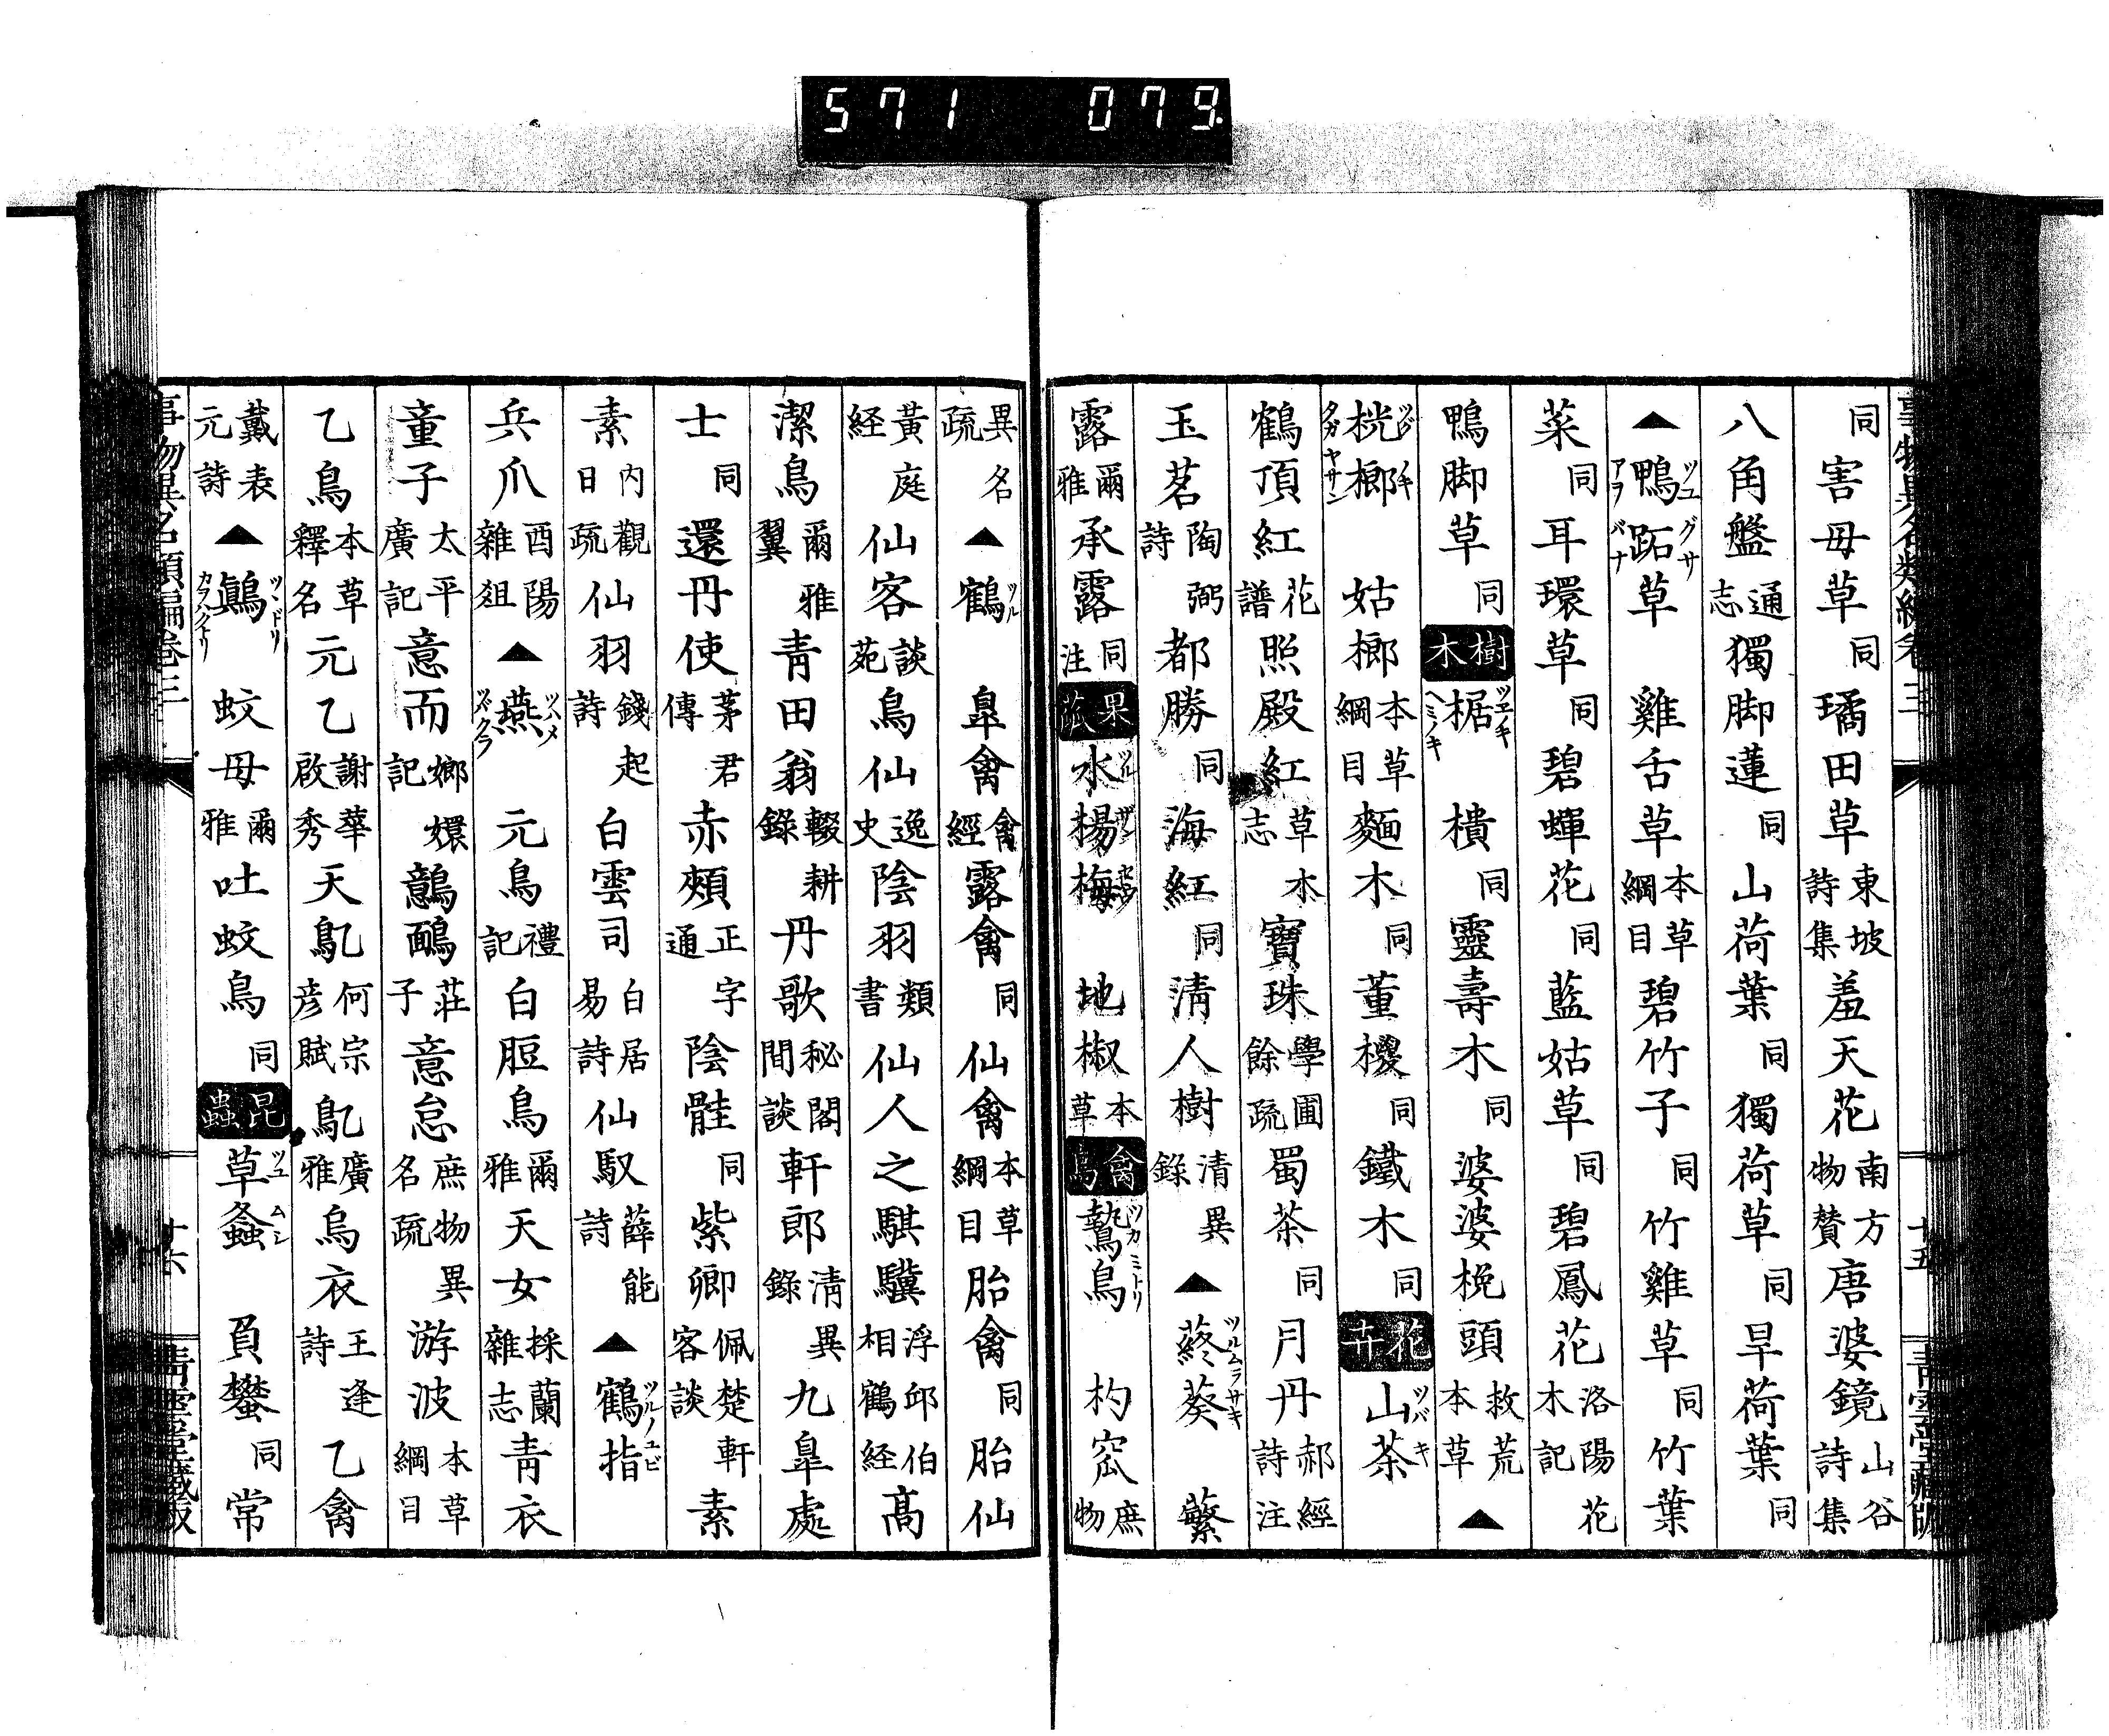 571 079.
同害毋草同璚田草東坡詩集羞天花南方物賛唐婆鏡山谷詩集
八角盤通志獨脚蓮同山荷葉同獨荷草同旱荷葉同
▲鴨跖草ツユグサアヲバナ雞舌草本草綱目碧竹子同竹雞草同竹葉
菜同耳環草同碧蟬花同藍姑草同碧鳳花洛陽花木記
鴨脚草同樹木椐ツエキヘミノキ樻同靈壽木同婆婆枕頭救荒本草▲
桄榔ツグノキタガヤサン姑榔本草綱目麵木同董椶同鐵木同花卉山茶ツバキ
鶴頂紅花譜照殿紅草木志寶珠學圃餘疏蜀茶同月丹郝經詩注
玉茗陶弼詩都勝同海紅同清人樹清異錄▲蔠葵ツルムラサキ蘩
露爾雅承露同注果蓏水楊梅地椒本草禽鳥鷙鳥ツカミトリ杓窊庶物
異名疏▲鶴ツル皐禽禽經露禽同仙禽本草綱目胎禽同胎仙
黃庭経仙客談苑鳥仙逸史陰羽類書仙人之騏驥浮邱伯相鶴経高
潔鳥爾雅翼青田翁輟耕錄丹歌秘閣閒談軒郎清異錄九皐處
士同還丹使茅君傳赤頰正字通陰䳏同紫卿佩楚軒客談素
素内觀日疏仙羽錢起詩白雲司白居易詩仙馭薛能詩▲鶴指ツルノユビ
兵爪酉陽雜俎▲燕ツハメツバクラ元鳥禮記白脰鳥爾雅天女採蘭雜志青衣
童子太平廣記意而嫏嬛記鷾鴯莊子意怠庶物異名疏游波本草綱目
乙鳥本草釋名元乙謝華啟秀天鳦何彦宗賦鳦廣雅烏衣王逢詩乙禽
戴表元詩▲鷏ツンドリカラスクヒドリ蚊母爾雅吐蚊鳥同昆蟲草螽ツユムシ負蠜同常